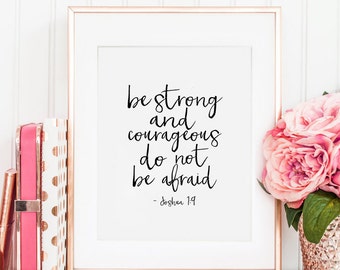 be strong
and
courageous
do not
be afraid
- Joshua 1:9